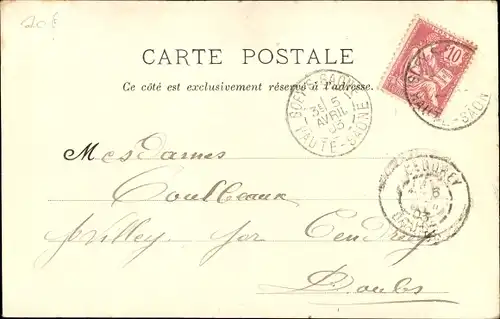 20€
CARTE POSTALE
Ce côté est exclusivement réservé à l'adresse.
10
GUEFFE-SAÔNE
3E 5
AVRIL
03
HAUTE-SAÔNE
Mesdames
Coulbeaux
par Cendrey
Doubs
CENDREY
6
03
DOUBS